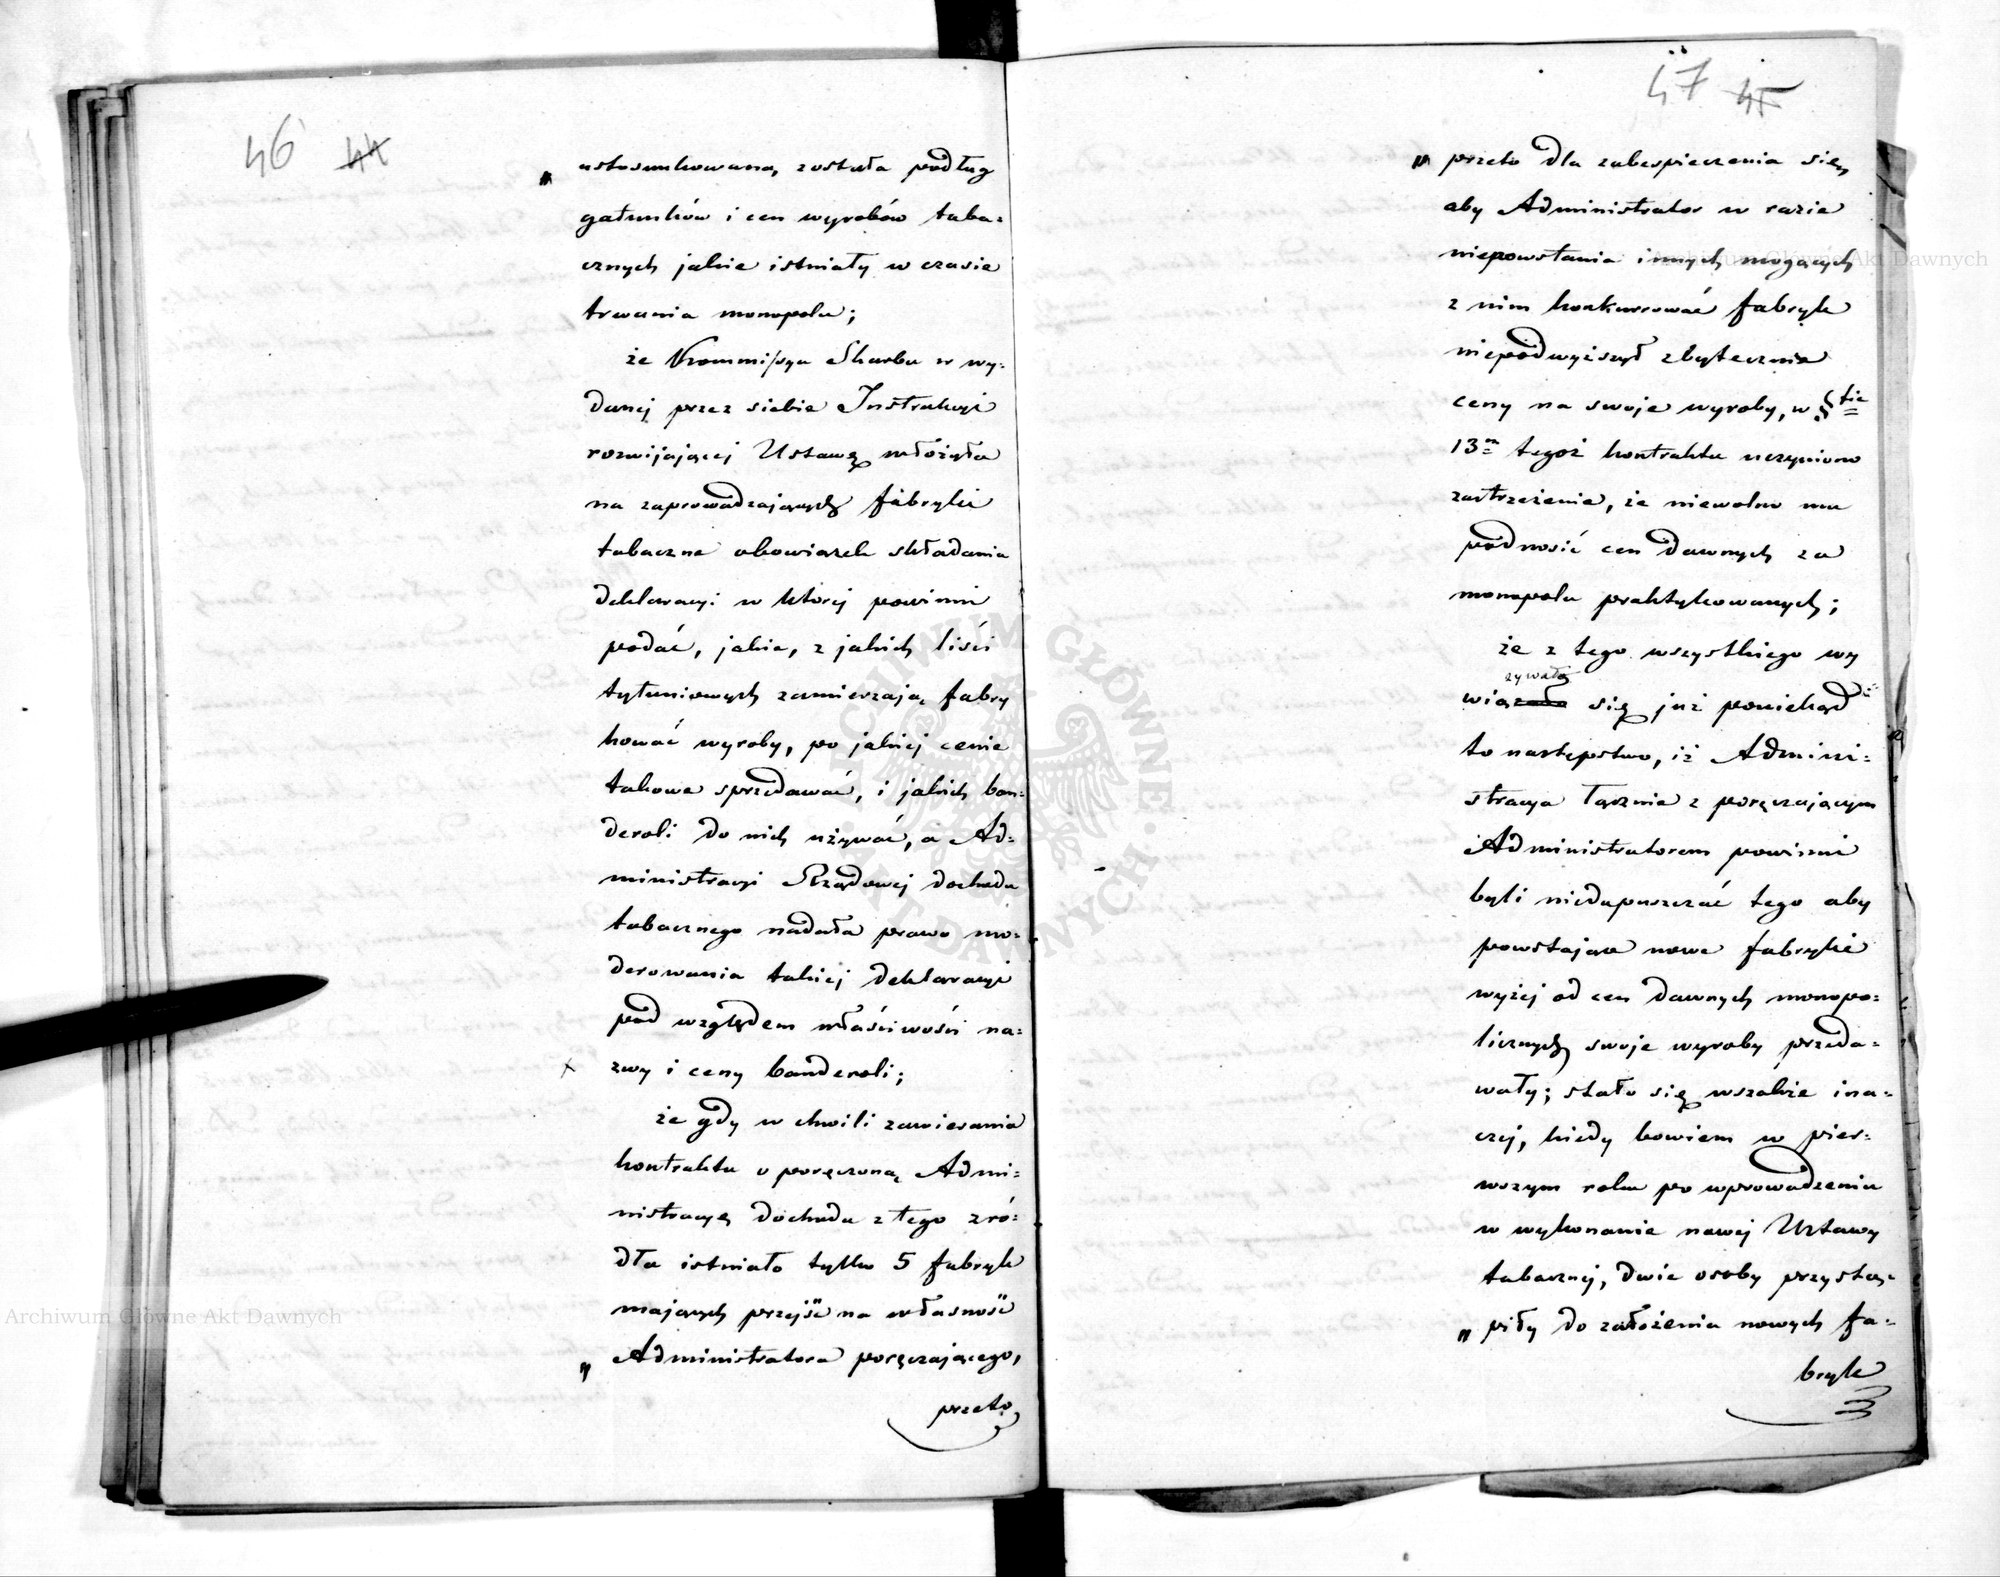 46 44
„ ustosunkowaną została podług
gatunków i cen wyrobów taba-
cznych jakie istniały w czasie
trwania monopolu;
że Kommissya Skarbu w wy-
danej przez siebie Instrukcyi
rozwijającej Ustawę włożyła
na zaprowadzających fabryki
tabaczne obowiązek składania
deklaracyi w której powinni
podać, jakie, z jakich liści
tytuniowych zamierzają fabry
kować wyroby, po jakiej cenie
takowe sprzedawać, i jakich ban-
deroli do nich używać, a Ad-
ministracyi Rządowej dochodu
tabacznego nadała prawo mo-
derowania takiej deklaracyi
pod względem właściwości na-
x zwy i ceny banderoli;
że gdy w chwili zawierania
kontraktu o poręczoną Admi-
nistracyę dochodu z tego zró-
dła istniało tylko 5 fabryk
mających przejść na własność
„ Administratora poręczającego,
przeto
47 45
„ przeto dla zabespieczenia się,
aby Administrator w razie
niepowstania innych mogących
z nim konkurrować fabryk
niepodwyższył zbytecznie
ceny na swoje wyroby, w §fie
13m tegoż kontraktu uczyniono
zastrzeżenie, że niewolno mu
podnosić cen dawnych za
monopolu praktykowanych;
że z tego wszystkiego wy
zywało
wiąz się już poniekąd
to następstwo, iż Admini-
stracya łącznie z poręczającym
Administratorem powinni
byli niedopuszczać tego aby
powstające nowe fabryki
wyżej od cen dawnych monopo-
licznych swoje wyroby przeda-
wały; stało się wszakże ina-
czej, kiedy bowiem w pier-
wszym roku po wprowadzeniu
w wykonanie nowej Ustawy
tabacznej, dwie osoby przystą-
„ piły do założenia nowych fa-
bryk
Archiwum Główne Akt Dawnych
Archiwum Główne Akt Dawnych
ARCHIWUM GŁÓWNE AKT DAWNYCH